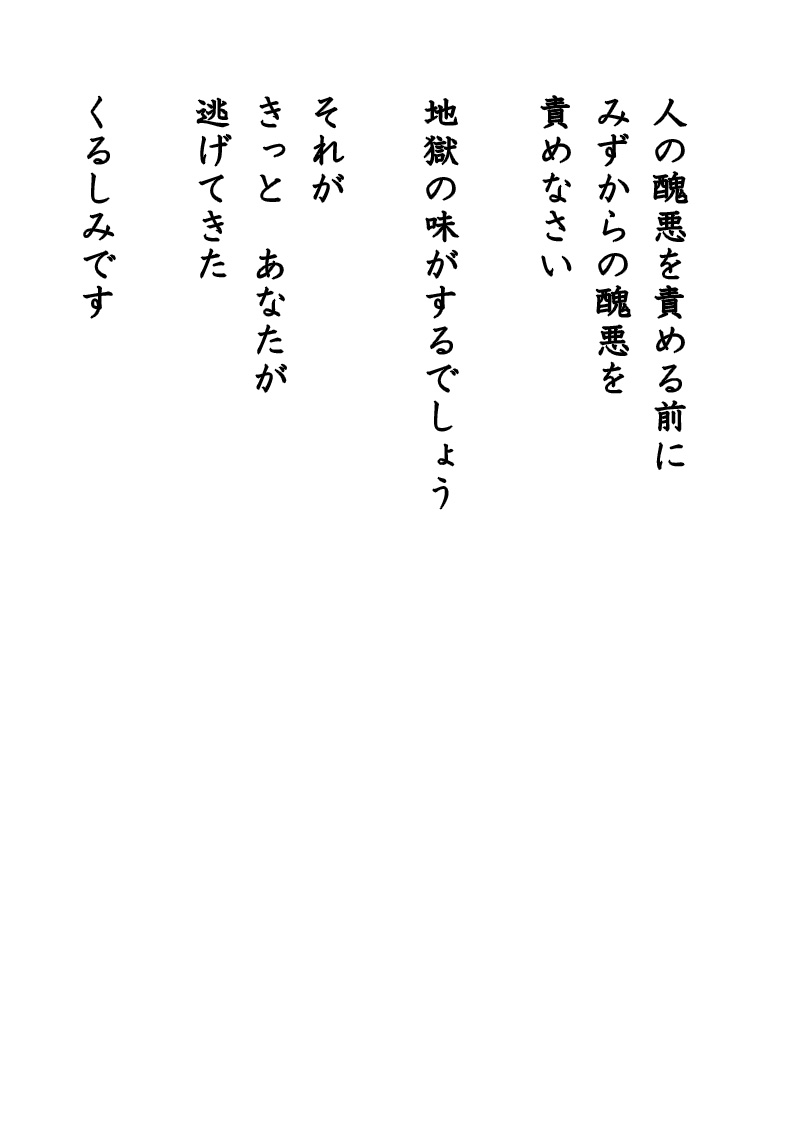 人の醜悪を責める前に
みずからの醜悪を
責めなさい
地獄の味がするでしょう
それが
きっと　あなたが
逃げてきた
くるしみです